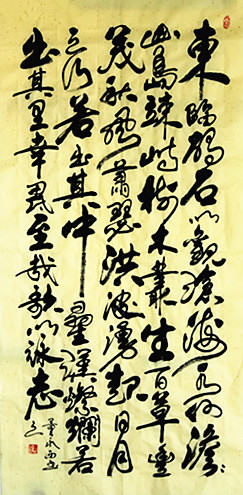 東臨碣石以觀滄海水何澹澹
山島竦峙樹木叢生百草豐
茂秋風蕭瑟洪波湧起日月
之行若出其中星漢燦爛若
出其里幸甚至哉歌以詠志